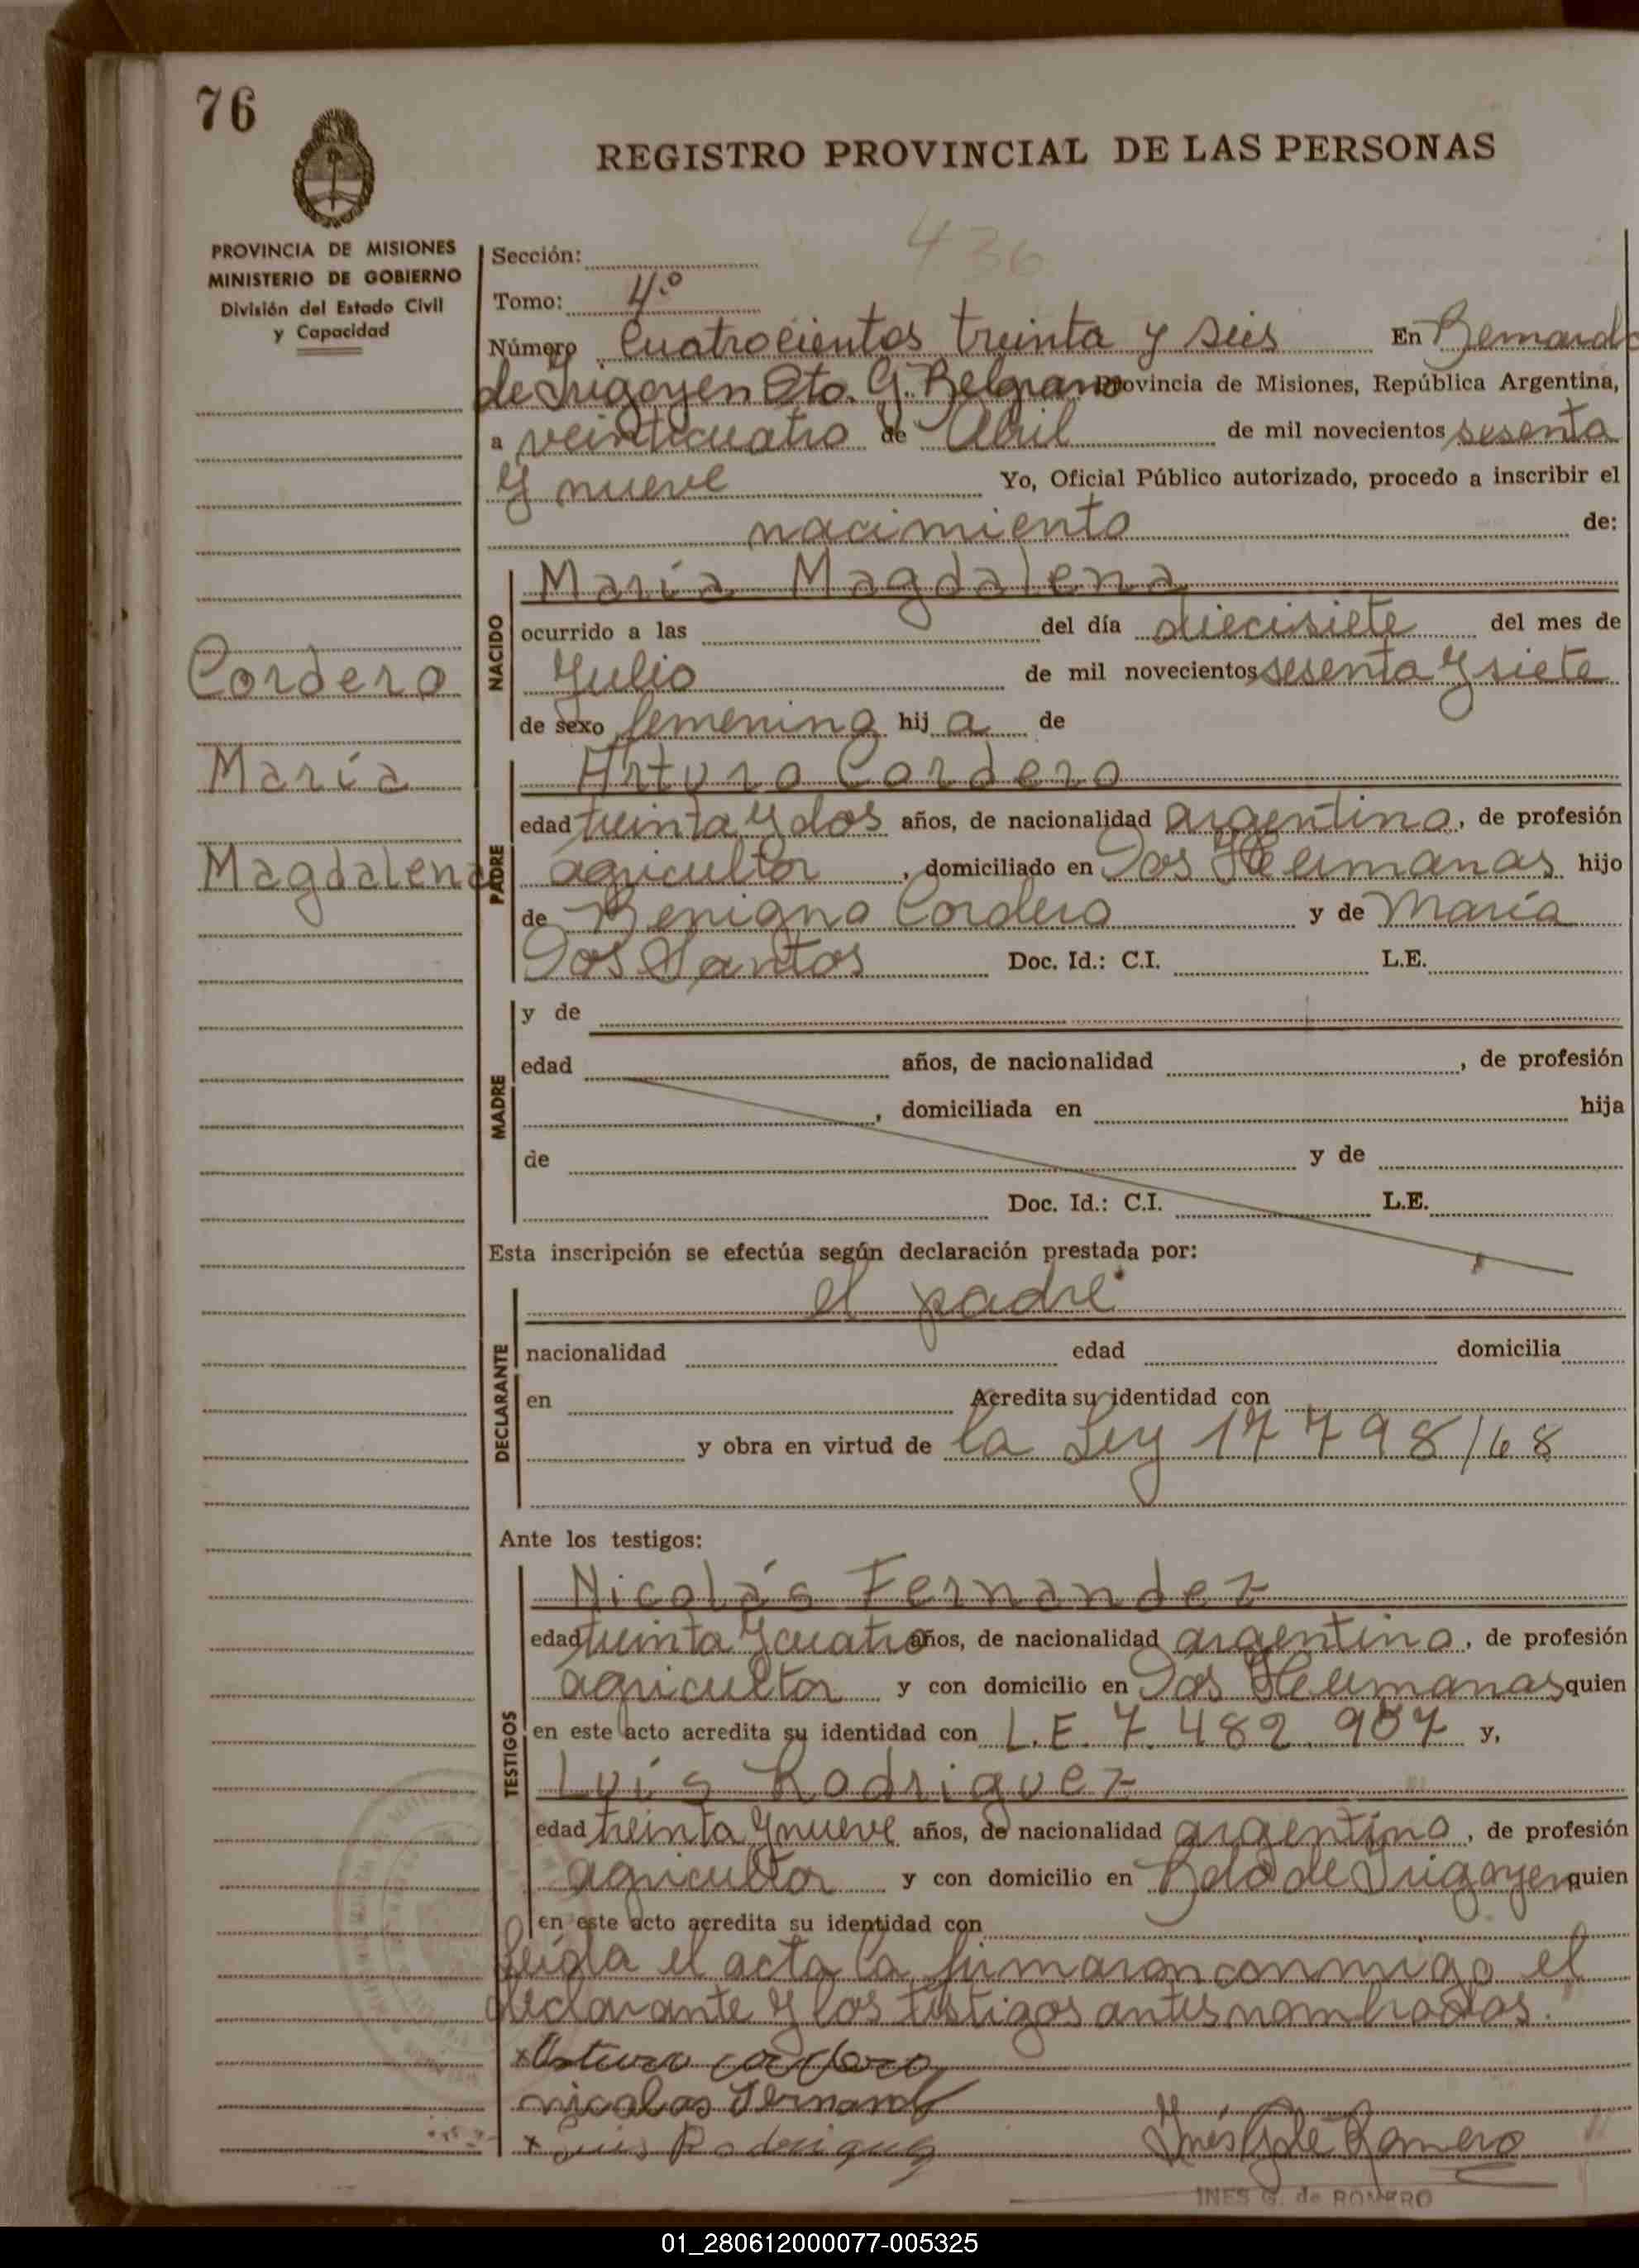 76
REGISTRO PROVINCIAL DE LAS PERSONAS
PROVINCIA DE MISIONES
MINISTERIO DE GOBIERNO
División del Estado Civil
y Capacidad
436
Sección:
Tomo: 4º
Número Cuatrocientos treinta y seis En Bernardo
de Irigoyen Dto. G. Belgrano Provincia de Misiones, República Argentina,
a veinticuatro de Abril de mil novecientos sesenta
y nueve Yo, Oficial Público autorizado, procedo a inscribir el
nacimiento de:
Cordero
María
Magdalena
NACIDO
María Magdalena
ocurrido a las del día diecisiete del mes de
Julio de mil novecientos sesenta y siete
de sexo femenino hij a de
PADRE
Arturo Cordero
edad treinta y dos años, de nacionalidad argentino, de profesión
agricultor, domiciliado en Dos Hermanas hijo
de Benigno Cordero y de María
Dos Santos Doc. Id.: C.I. L.E.
MADRE
y de
edad años, de nacionalidad , de profesión
, domiciliada en hija
de y de
Doc. Id.: C.I. L.E.
Esta inscripción se efectúa según declaración prestada por:
DECLARANTE
el padre
nacionalidad edad domicilia
en Acredita su identidad con
y obra en virtud de la Ley 17798/68
Ante los testigos:
TESTIGOS
Nicolás Fernandez
edad treinta y cuatro años, de nacionalidad argentino, de profesión
agricultor y con domicilio en Dos Hermanas quien
en este acto acredita su identidad con L.E. 7.482.907 y,
Luís Rodriguez
edad treinta y nueve años, de nacionalidad argentino, de profesión
agricultor y con domicilio en Bdo de Irigoyen quien
en este acto acredita su identidad con
leída el acta la firmaron conmigo el
declarante y los testigos antes nombrados.
x Arturo Cordero
nicolas Fernand
x Luis Rodriguez
Inés G de Romero
INES G. de ROMERO
01_280612000077-005325